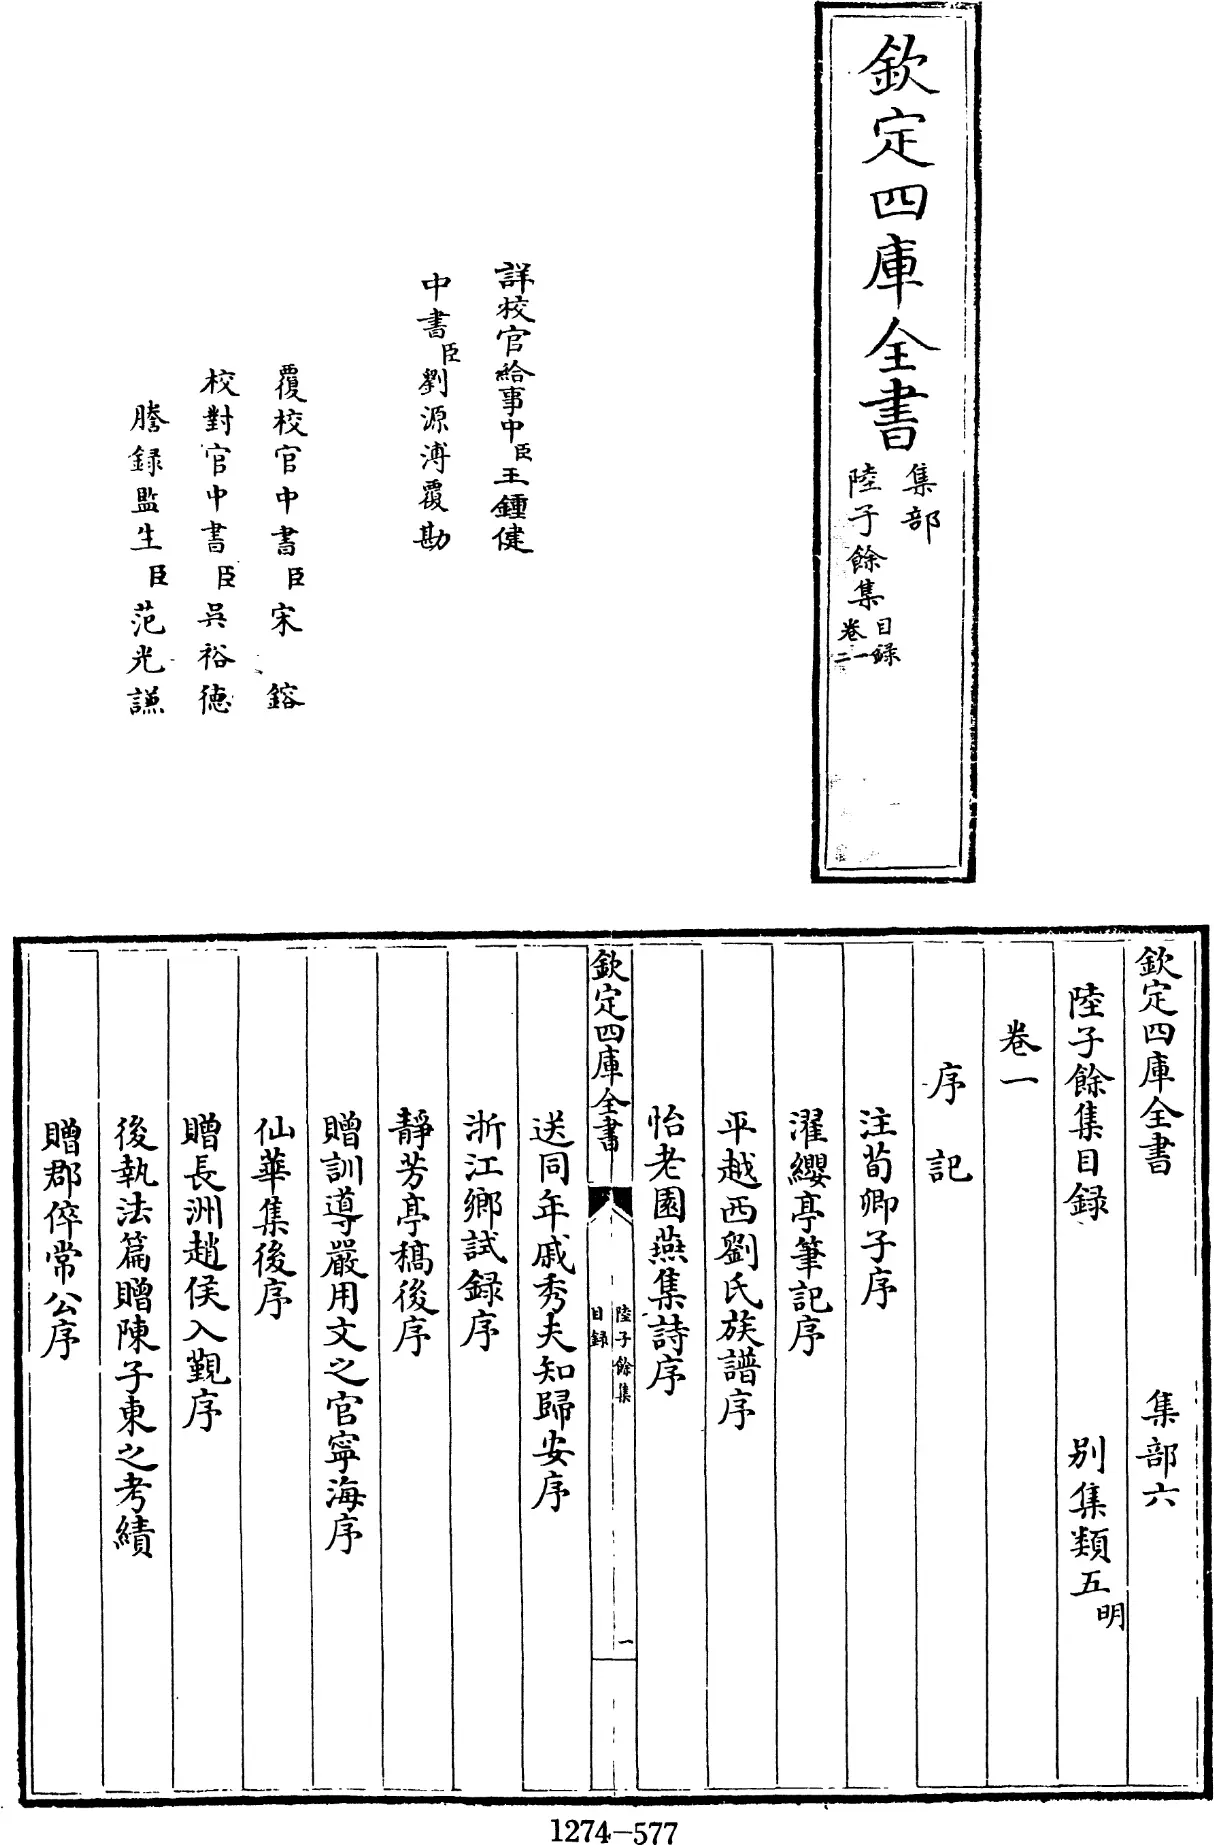 欽定四庫全書
集部
陸子餘集
目錄
卷一
二
詳校官給事中臣王鍾健
中書臣劉源溥覆勘
覆校官中書臣宋鎔
校對官中書臣吳裕德
謄錄監生臣范光謙
欽定四庫全書 集部六
陸子餘集目録 別集類五明
卷一
序 記
注荀卿子序
濯纓亭筆記序
平越西劉氏族譜序
怡老園燕集詩序
欽定四庫全書
陸子餘集
目録
一
送同年戚秀夫知歸安序
浙江鄉試録序
靜芳亭稿後序
贈訓導嚴用文之官寧海序
仙華集後序
贈長洲趙侯入覲序
後執法篇贈陳子東之考績
贈郡倅常公序
1274-577